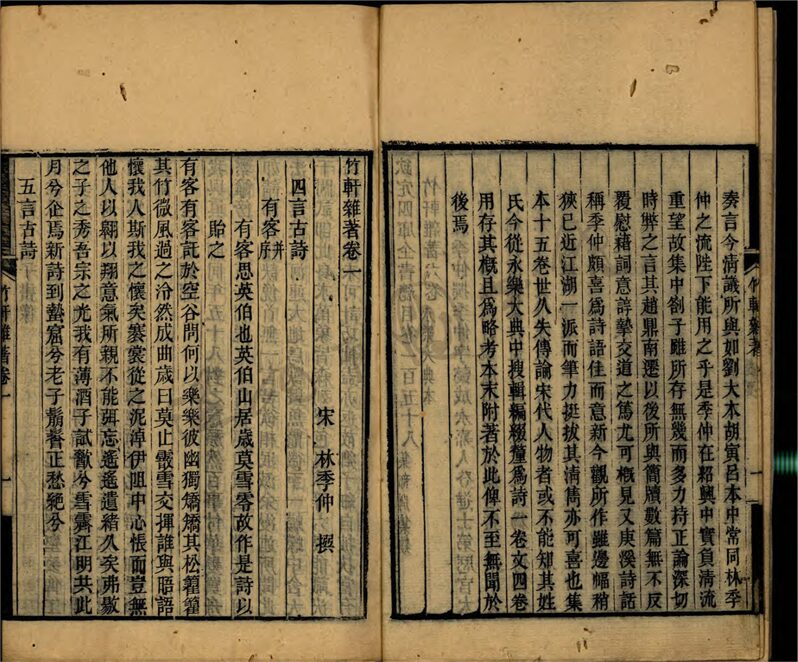 奏言今清議所與如劉大本胡寅呂本中常同林季
仲之流陛下能用之乎是季仲在紹興中實負清流
重望故集中劄子雖所存無幾而多力持正論深切
時弊之言其趙鼎南遷以後所與簡牘數篇無不反
覆慰藉詞意諄摯交道之篤尤可槪見又東溪詩話
稱季仲頗喜爲詩語佳而意新今觀所作雖邊幅稍
狹已近江湖一派而筆力挺拔其清雋亦可喜也集
本十五卷世久失傳論宋代人物者或不能知其姓
氏今從永樂大典中搜輯編綴釐爲詩一卷文四卷
用存其槪且爲略考本末附著於此俾不至無聞於
後焉
竹軒雜著
竹軒雜著卷一
宋 林季仲 撰
四言古詩
有客并序
有客思英伯也英伯山居歲莫雪零故作是詩以
貽之
有客有客託於空谷問何以樂樂彼幽獨矯矯其松籊籊
其竹微風過之泠然成曲歲曰莫止霰雪交揮誰與晤語
懷我人斯我之懷矣褰裳從之泥淖伊阻中心悵而豈無
他人以翱以翔意氣所親不能弭忘遙遙遺緒久矣弗敭
之子之秀吾宗之光我有薄酒子試歠兮雪霽江明共此
月兮企焉新詩到蓺窟兮老子鬅鬙正愁絕兮
五言古詩
竹軒雜著卷一
一